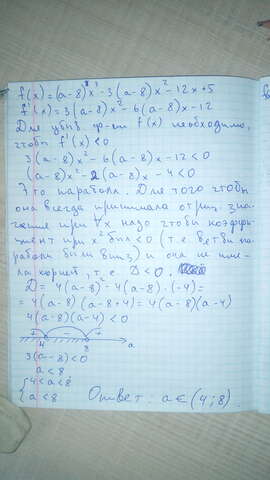 f(x)=(a-8)x³-3(a-8)x²-12x+5
f'(x)=3(a-8)x²-6(a-8)x-12
Для убыв. ф-ии f(x) необходимо,
чтобы f'(x)<0
3(a-8)x²-6(a-8)x-12<0
(a-8)x²-2(a-8)x-4<0
Это парабола. Для того чтобы
она всегда принимала отриц. зна-
чение при ∀x надо чтобы коэффи-
циент при x² был <0 (т.е. ветви па-
раболы были вниз) и она не име-
ла корней, т.е. D<0.
D=4(a-8)²-4(a-8)·(-4)=
=4(a-8)(a-8+4)=4(a-8)(a-4)
4(a-8)(a-4)<0
+ - +
4 8 a
3(a-8)<0
a<8
{4<a<8
a<8
Ответ: a∈(4;8).